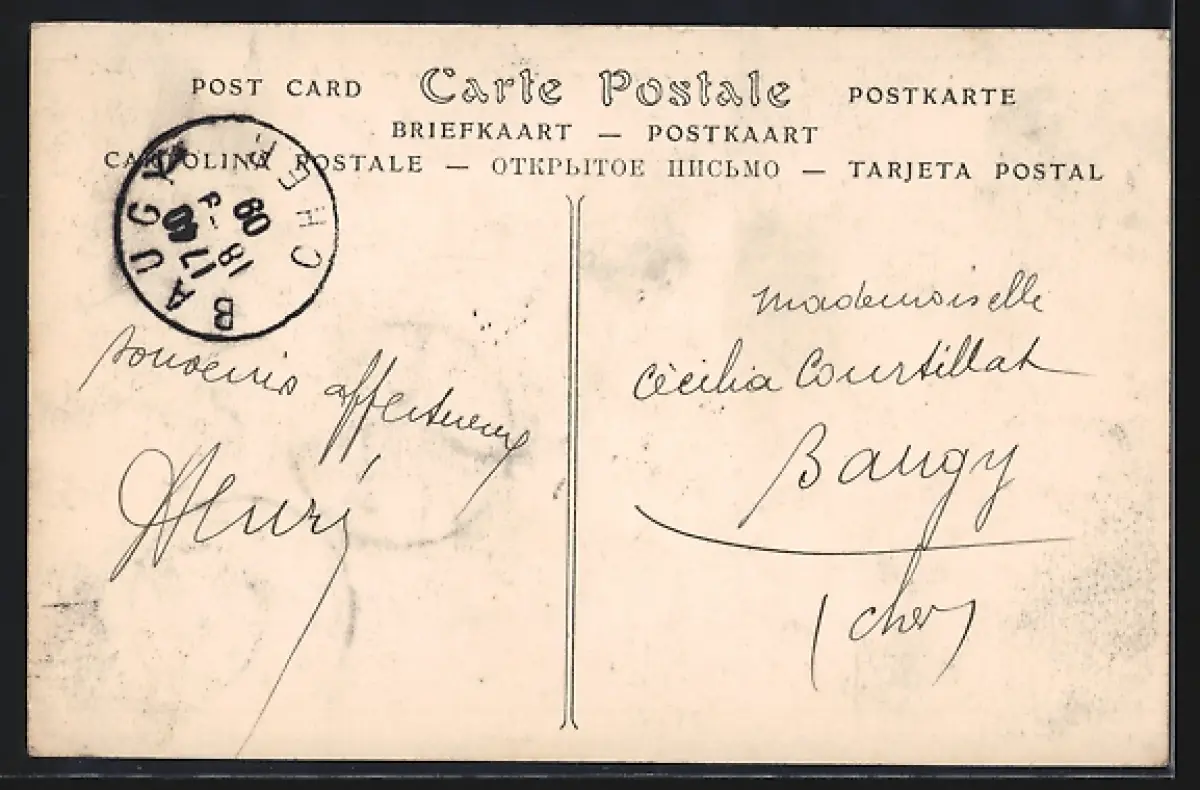 POST CARD Carte Postale POSTKARTE
BRIEFKAART — POSTKAART
CARTOLINA POSTALE — ОТКРЫТОЕ ПИСЬМО — TARJETA POSTAL
BAUGY
CHER
18
08
souvenirs affectueux
Henri
Mademoiselle
Cécilia Courtillat
Baugy
(Cher)